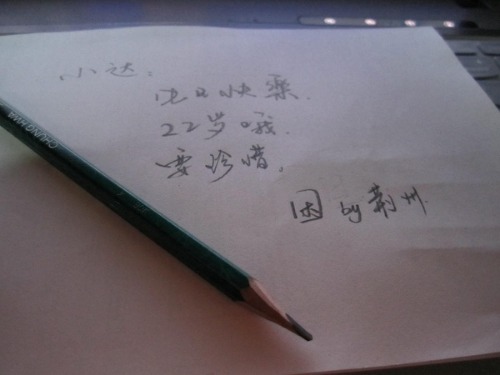 小达：
生日快乐.
22岁哦.
要珍惜。
困 by 荆州